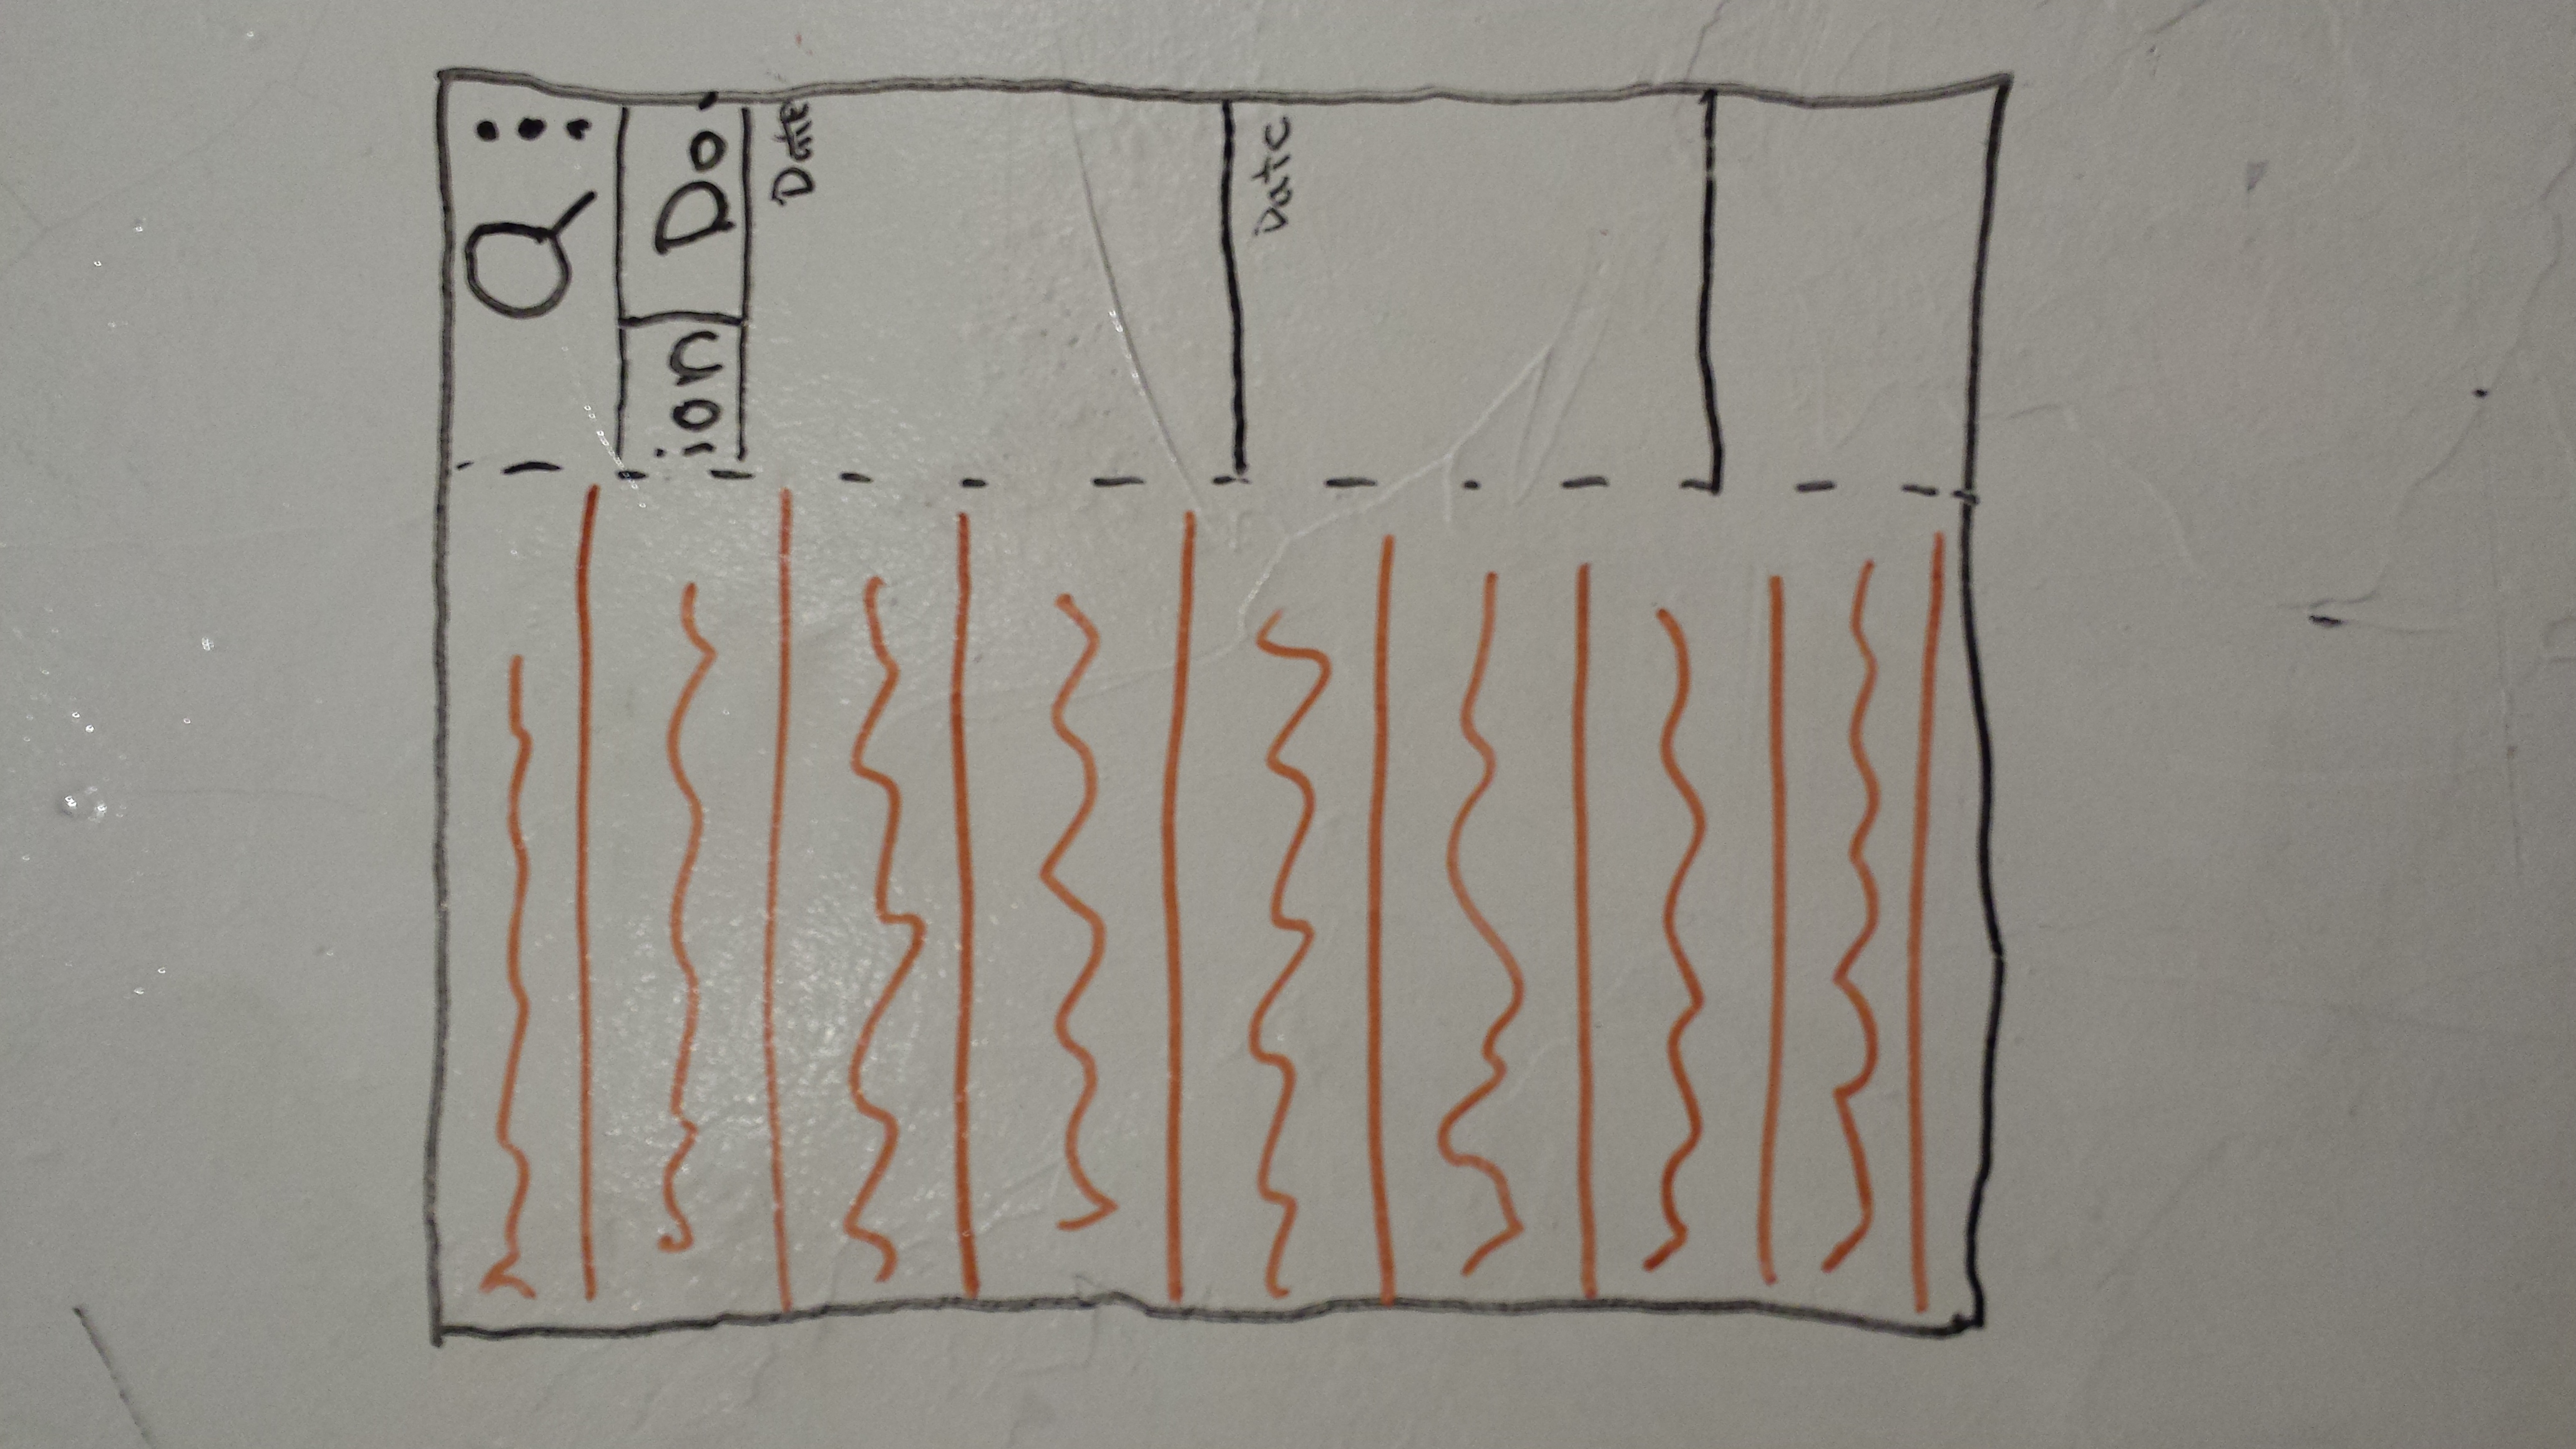 ion Do
Date
Date